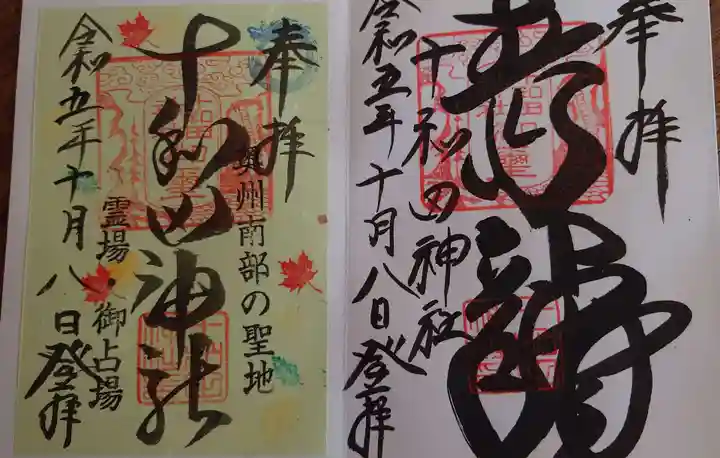 奉拝
奥州南部の聖地
十和田神社
霊場・御占場
令和五年十月八日登拝
奉拝
青龍
十和田神社
令和五年十月八日登拝